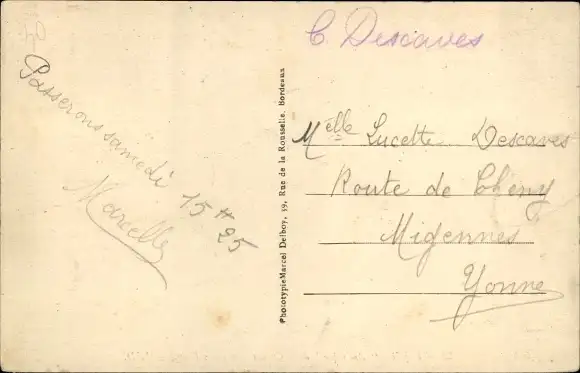 C. Descaves
Passerons samedi
15 H 25
Marcelle
Phototypie Marcel Delboy, 39, Rue de la Rousselle, Bordeaux
Melle Lucette Descaves
Route de Cheny
Migennes
Yonne